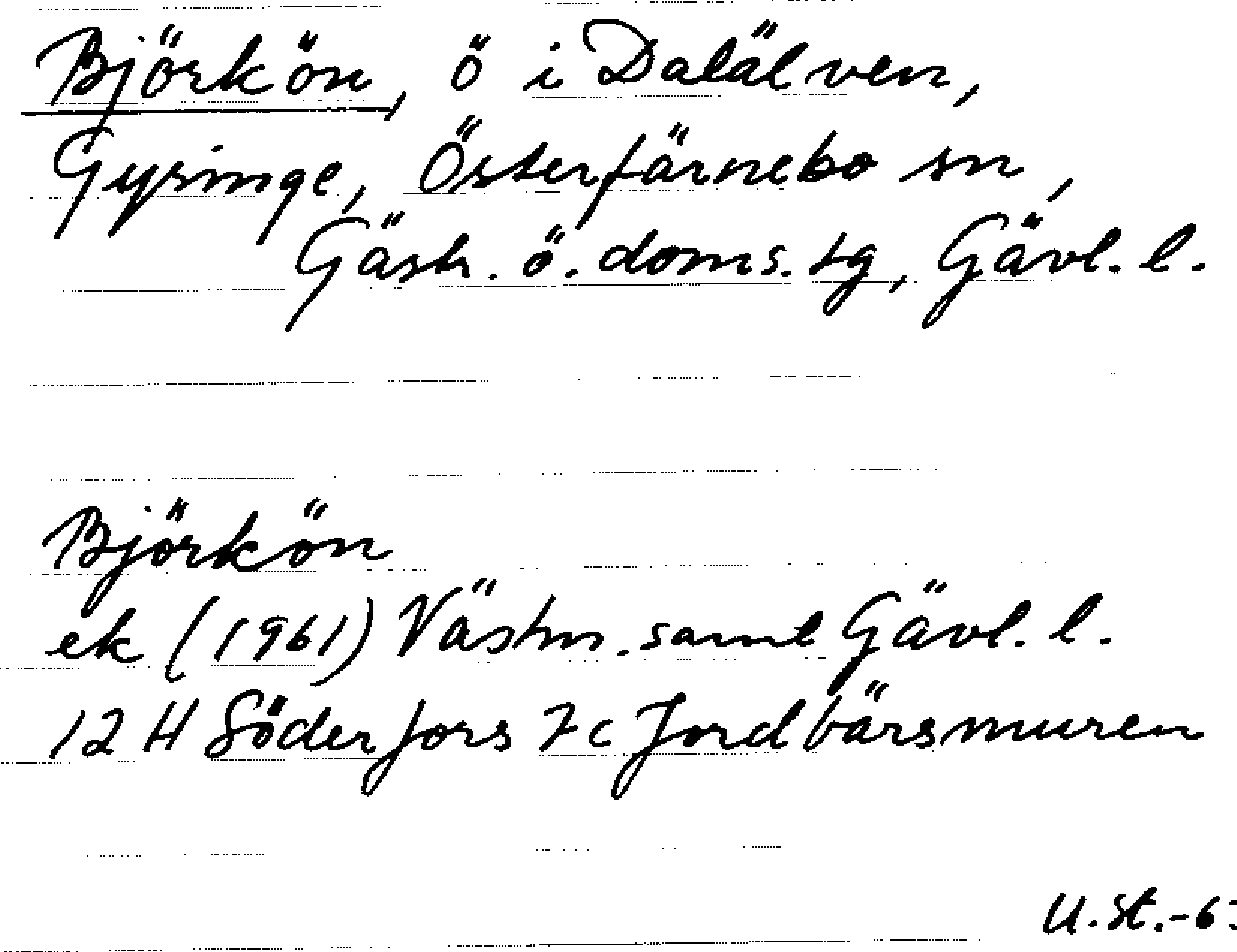 Björkön, ö i Dalälven,
Gysinge, Österfärnebo sn,
Gästr. ö. doms. tg, Gävl. l.
Björkön
ek (1961) Västm. samt Gävl. l.
12 H Söderfors 7c Jordbärsmuren
U. St. -6